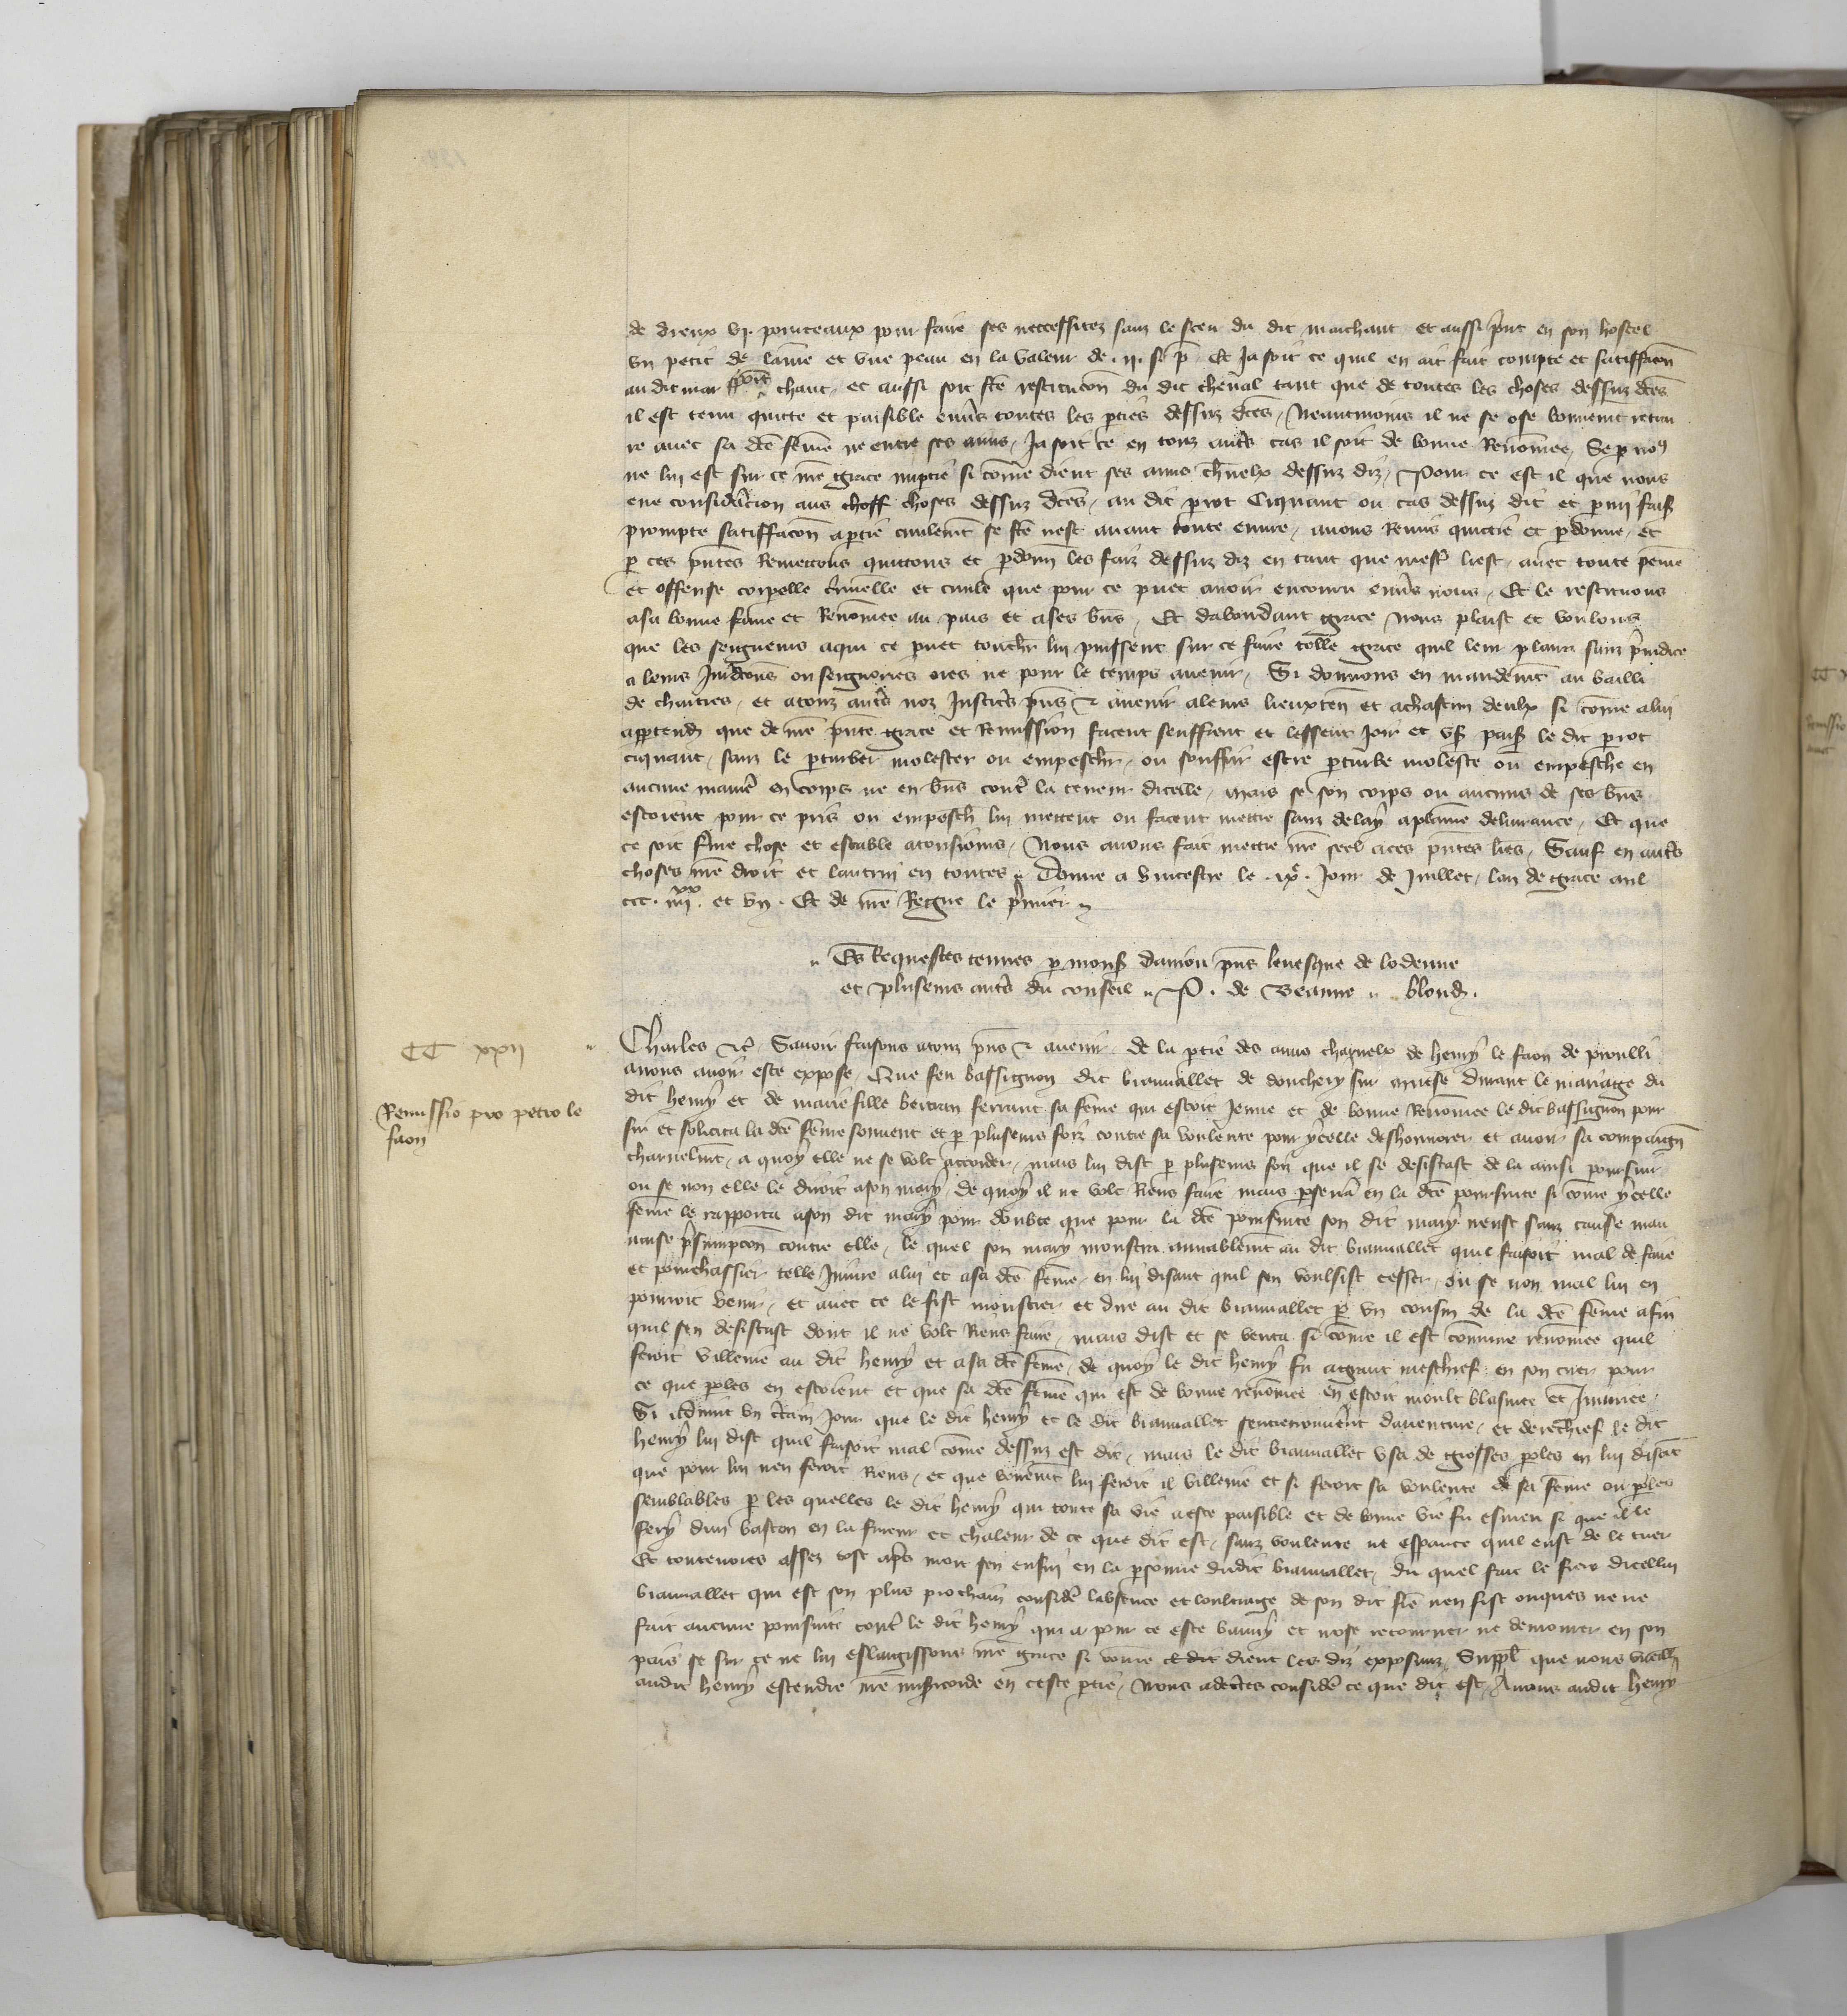 de dreux vj. pourceaux pour faire ses neccessitez sanz le sceu du dit marchant et aussi p̃nt en son hostel
vn petit de laine et vne peau en la valeur de .ij. s. p̃. Et Ja soit ce quil en ait fait compte et satisfaciõn
au dit mar chant et aussi soit fc̃e restitucõn du dit cheual tant que de toutes les choses dessuz dc̃es
il est tenu quicte et paisible enũs toutes les p̃ties dessuz dc̃es, Neantmoins il ne se ose bonnemt retrai
re auec sa dc̃e fem̃e ne entre ses amis, Ja soit ce en touz autr̃s cas il soit de bonne Renom̃ee, Se p̃ noꝰ
ne lui est sur ce nr̃e grace impartie si com̃e dient ses amis ch̃nelx dessuz diz, Pour ce est il que nous
eue consideracion aus choff choses dessuz dc̃es, au dit p̃rot Ciquart ou cas dessuz dit et p̃mi fais
prompte satiffacõn a p̃tie ciuilemt se fc̃e nest auant toute euure, auons Remis quictie et p̃donne, et
p̃ ces p̃ntes Remettons quittons et p̃donn̄ les faiz dessuz diz en tant que mest̃ liest, auec toute peine
et offense corporelle criminelle et ciuile que pour ce puet auoir encouru enũs nous, Et le restituons
a sa bonne fame et Renom̃ee au pais et a ses biẽns, Et dabondant grace Nous plaist et voulons
que les seigneurs a qui ce puet toucher lui puissent sur ce faire telle grace quil leur plaira sanz p̃iudice
a leurs Juridic̃ons ou seigneuries ores ne pour le temps auenir, Si donnons en mandemt au bailli
de chartres, et a touz autr̃s noz Justicr̃s p̃ns & auenir a leurs lieuxten̄ et a chascun deulx si com̃e a lui
appartendr̃ que de nr̃e p̃nte grace et Remission facent seuffrent et lessent Joir et vs̃ paisi le dit p̃rot
ciquart, sanz le p̃turber molester ou empescher, ou souffrir estre p̃turbe moleste ou empesche en
aucune maniẽr en corps ne en biẽns contr̃ la teneur dicelle, mais se son corps ou aucuns de ses biens
estoient pour ce pris ou empesch̃ lui mettent ou facent mettre sanz delay a plaine deliurance, Et que
ce soit ferme chose et estable a tousiours, Nous auons fait mettre nr̃e seel a ces p̃ntes lr̃es, Sauf en autr̃s
choses nr̃e droit et lautrui en toutes. Donne a vincestre le .ixᵉ. Jour de Juillet, lan de grace mil
ccc. iiijˣˣ. et vn. Et de nr̃e Regne le premier.
Es Requestes tenues p̃ monss̃ daniou p̃ns leuesque de lodeuue
et plusieurs autr̃s du conseil. P. de Veanne. blond̃.
CC xxij
Charles &c̃. Sauoir faisons a touz p̃ns & auenir, de la p̃tie des amis charnelx de henry le faon de prouilli
auons auoir este expose, Que feu bassignon dit biauuallet de donchery sur muese durant le mariage du
dit henry et de marie fille bertran ferrant sa fem̃e qui estoit Jeune et de bonne Renom̃ee le dit bassignon pour
Remissio pro petro le
faon
sui et solicita la dc̃e fem̃e souuent et p̃ plusieurs foiz contre sa voulente pour ycelle deshonnorer et auoir sa compaign̄
charnelmt, a quoy elle ne se volt accorder, mais lui dist p̃ plusieurs foiz que il se desistast de la ainsi poursuir
ou se non elle le diroit a son mary, de quoy il ne volt Riens faire mais p̃seũa en la dc̃e poursuite si com̃e ycelle
fem̃e le rapporta a son dit mary pour doubte que pour la dc̃e poursuite son dit mary neust sanz cause mau
uaise p̃sumpcõn contre elle, le quel son mary monstra amiablemt au dit biauuallet quil faisoit mal de faire
et pourchassier telle Iniure a lui et a sa dc̃e fem̃e, en lui disant quil sen voulsist cesser, ou se non mal lui en
pourroit venir, et auec ce le fist monstrer et dire au dit biauuallet p̃ vn cousin de la dc̃e fem̃e afin
quil sen desistast dont il ne volt Riens faire, mais dist et se venta si com̃e il est com̃mune renom̃ee quil
feroit villenie au dit henry et a sa dc̃e fem̃e, de quoy le dit henry fu a grant meschief en son cuer pour
ce que p̃oles en estoient et que sa dc̃e fem̃e qui est de bonne renom̃ee en estoit moult blasmee et Iniuriee,
Si aduint vn certain Jour que le dit henry et le dit biauuallet sentrencontrer̃nt dauenture, et derechief le dit
henry lui dist quil faisoit mal com̃e dessuz est dit, mais le dit biauuallet vsa de grosses p̃oles en lui disant
que pour lui nen feroit Riens, et que vraiemt lui feroit il villenie et si feroit sa voulente de sa fem̃e ou p̃oles
semblables p̃ les quelles le dit henry qui toute sa vie a este paisible et de bonne vie fu esmeu si que il le
fery dun baston en la fureur et chaleur de ce que dit est, sanz voulente ne esp̃ance quil eust de le tuer
Et toutesuoies assez tost apr̃s mort sen ensui en la p̃sonne dudit biauuallet, du quel fait le frere dicellui
biauuallet qui est son plus prochain consider̃ labsence et loultrage de son dit fr̃e nen fist onques ne ne
fait aucune poursuite contr̃ le dit henry qui a pour ce este banny et nose retourner ne demourer en son
pais se sur ce ne lui eslargissons nr̃e grace si com̃e dient les diz exposans, Suppl̃ que nous vueill̃
audit henry estendre nr̃e mis̃icorde en ceste p̃tie, Nous adc̃ertes consider̃ ce que dit est, Auons audit henry